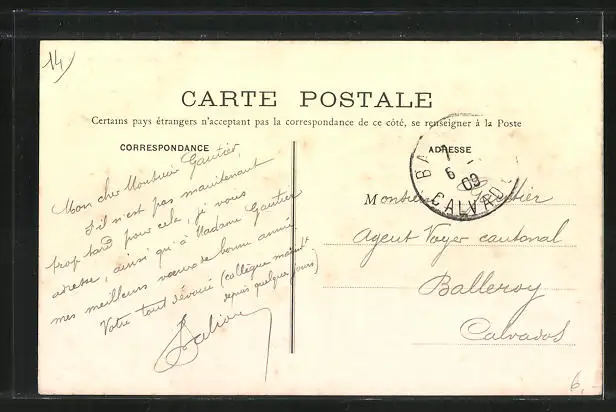 14
CARTE POSTALE
Certains pays étrangers n'acceptant pas la correspondance de ce côté, se renseigner à la Poste
CORRESPONDANCE
Mon cher Monsieur Gautier,
S'il n'est pas maintenant
trop tard pour cela, je vous
adresse, ainsi qu'à Madame Gautier
mes meilleurs vœux de bonne année.
Votre tout dévoué (collègue maint<sup>t</sup>
depuis quelques jours)
ADRESSE
BA
6
09
CALVADOS
Monsieur Gautier
Agent Voyer cantonal
Balleroy
Calvados
6,-